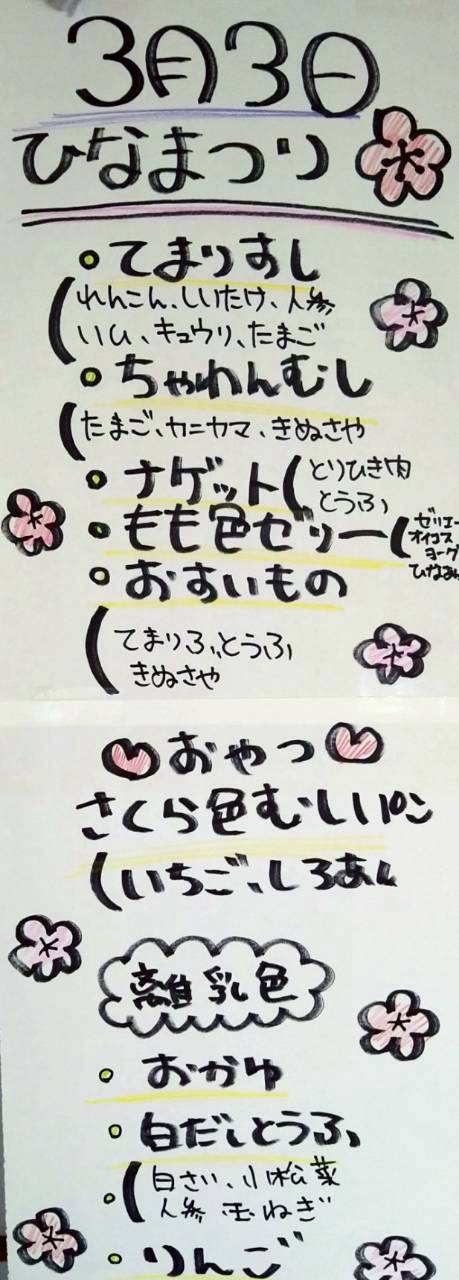 3月3日
ひなまつり
・てまりすし
(れんこん、しいたけ、人参
いひ、キュウリ、たまご
・ちゃわんむし
(たまご、カニカマ、きぬさや
・ナゲット(とりひき肉
とうふ
・もも色ゼリー(ゼリエー
オイコス
ヨーグ
ひなあ
・おすいもの
(てまりふ、とうふ
きぬさや
おやつ
さくら色むしパン
(いちご、しろあん
離乳色
・おかゆ
・白だしとうふ
・(白さい、小松菜
人参 玉ねぎ
・りんご